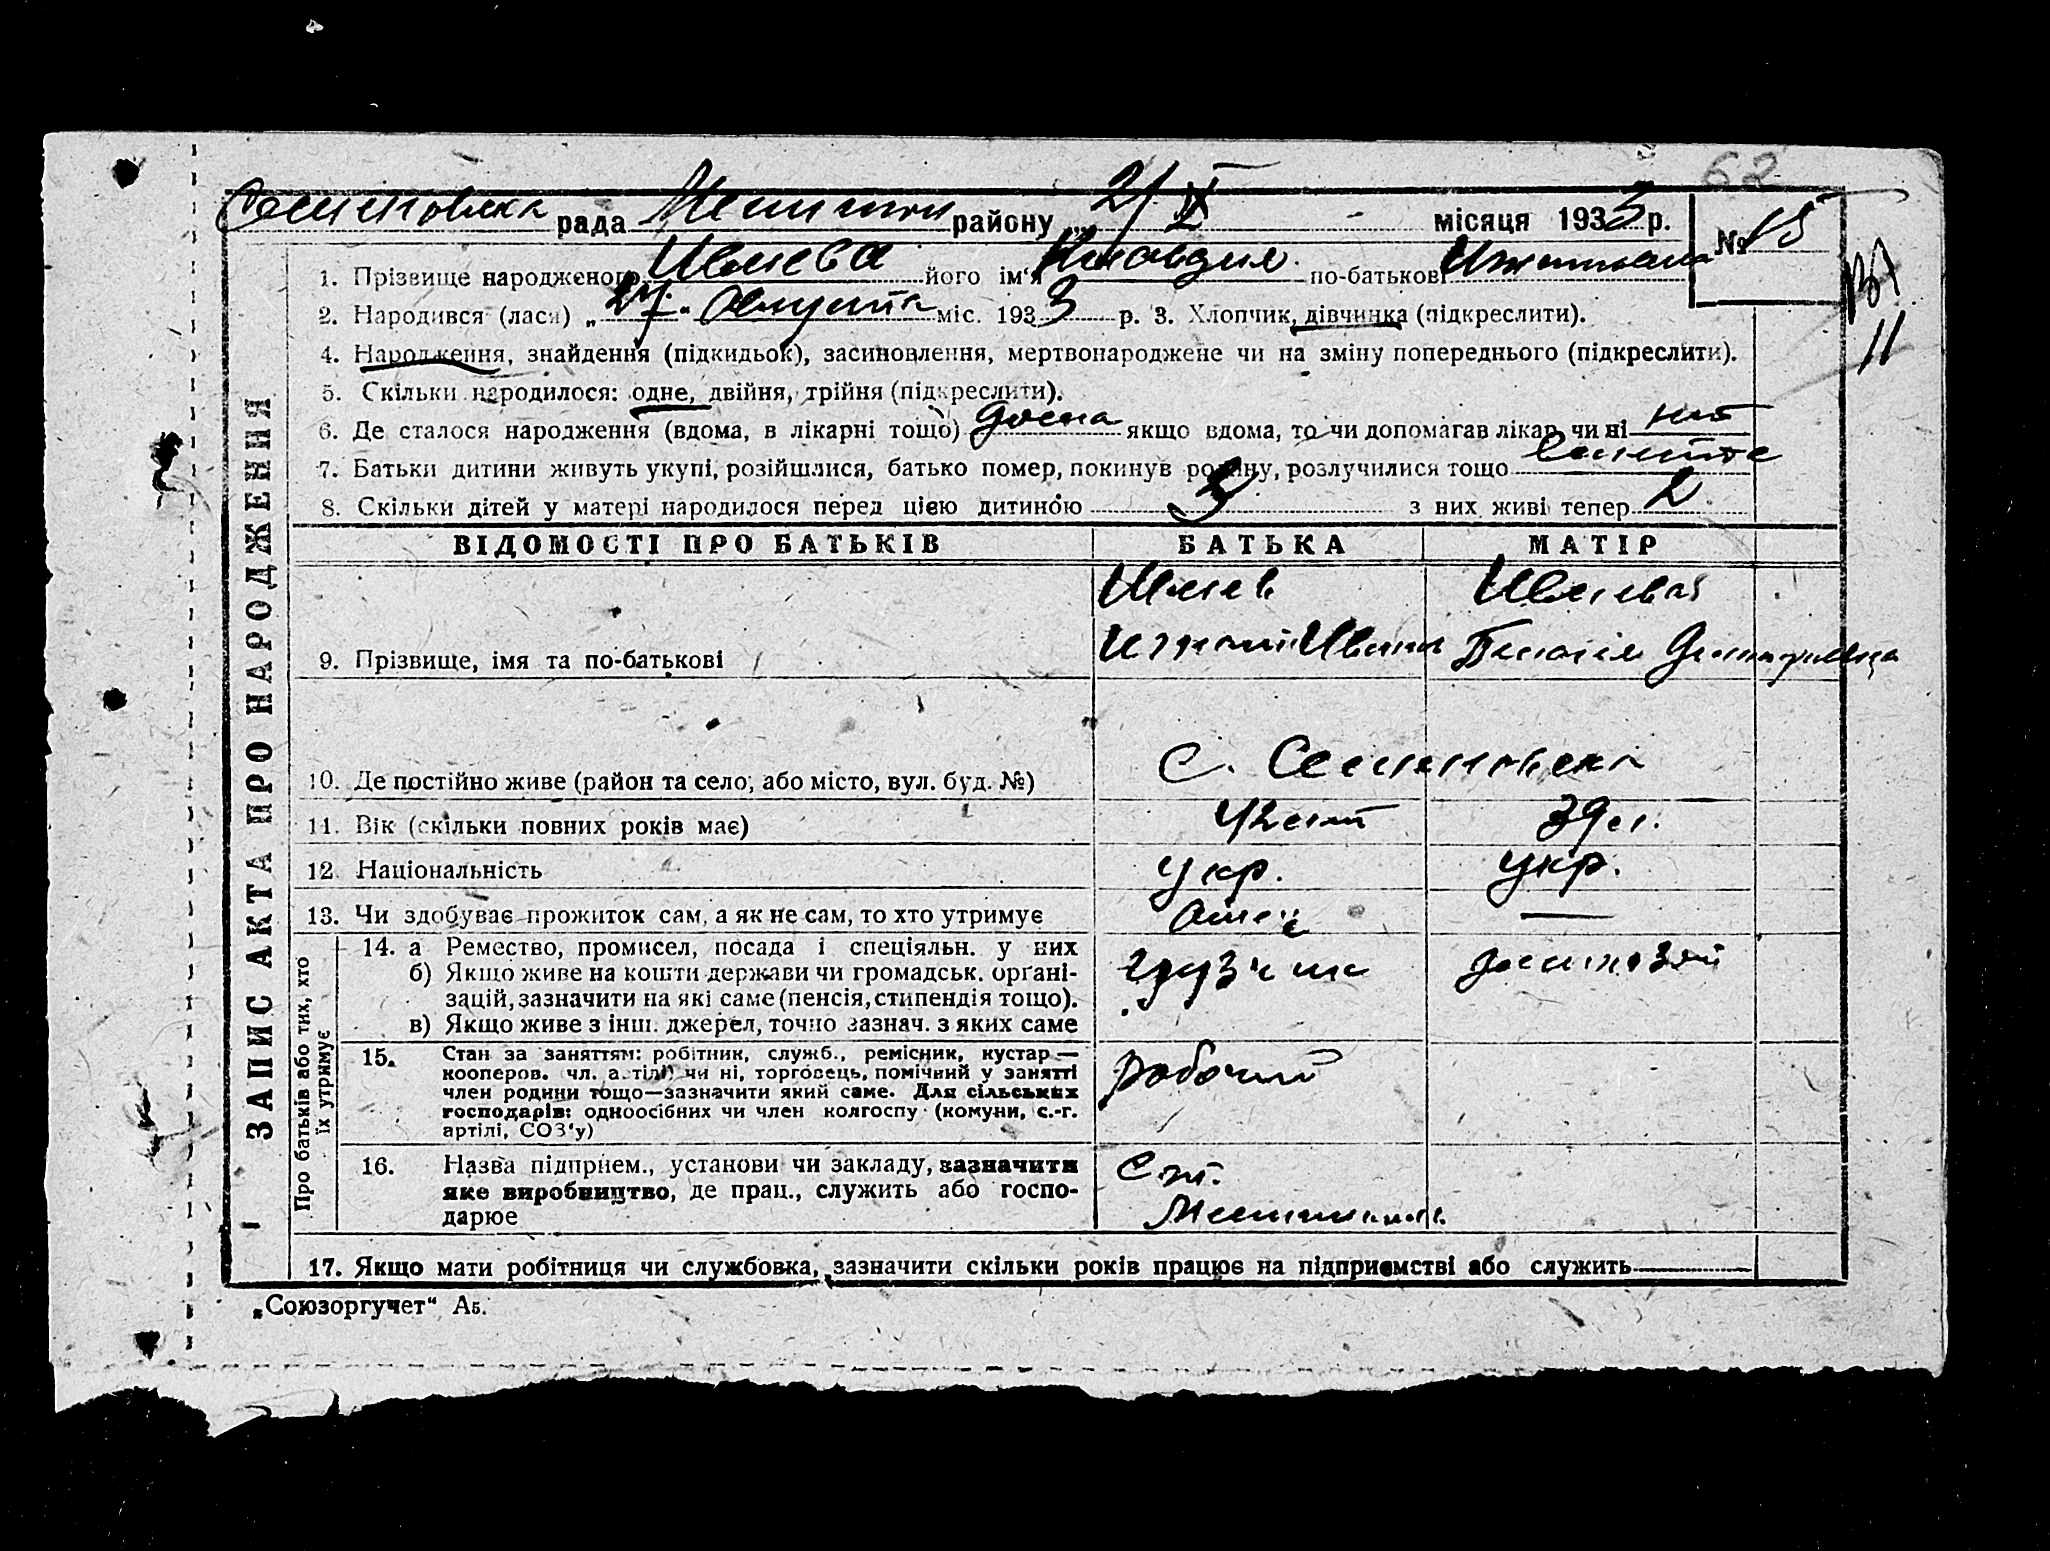 62
Семеновска рада Мелитоп району „ 21 X місяця 1933 р. № 15
1. Прізвище народженого Ивлева його ім'я Клавдия по-батькові
2. Народився (лася) „27" Августа міс. 1933 р. 3. Хлопчик, дівчинка (підкреслити).
11
4. Народження, знайдення (підкидьок), засиновлення, мертвонароджене чи на зміну попереднього (підкреслити).
5. Скільки народилося: одне, двійня, трійня (підкреслити).
6. Де сталося народження (вдома, в лікарні тощо) дома якщо вдома, то чи допомагав лікар, чи ні нет
7. Батьки дитини живуть укупі, розійшлися, батько помер, покинув родину, розлучилися тощо
8. Скільки дітей у матері народилося перед цією дитиною 3 з них живі тепер 2
ЗАПИС АКТА ПРО НАРОДЖЕННЯ
ВІДОМОСТІ ПРО БАТЬКІВ БАТЬКА МАТІР
Ивлев Ивлева
9. Прізвище, імя та по-батькові Иван Пелагея Дмитриевна
10. Де постійно живе (район та село, або місто, вул. буд. №) С. Семеновска
11. Вік (скільки повних років має) 42 лет 39 л.
12. Національність укр. укр.
13. Чи здобуває прожиток сам, а як не сам, то хто утримує Отец —
Про батьків або тих, хто їх утримує
14. а Ремество, промисел, посада і спеціяльн. у них грузчик домохозяй
б) Якщо живе на кошти держави чи громадськ. орґані-
зацій, зазначити на які саме (пенсія, стипендія тощо).
в) Якщо живе з інш. джерел, точно зазнач. з яких саме
15. Стан за заняттям: робітник, служб., ремісник, кустар — рабочий
кооперов. чл. артілі чи ні, торговець, помічний у занятті
член родини тощо—зазначити який саме. Для сільських
господарів: одноосібних чи член колгоспу (комуни, с.-г.
артілі, СОЗ'у)
16. Назва підприєм., установи чи закладу, зазначити Ст.
яке виробництво, де прац., служить або госпо-
дарює
17. Якщо мати робітниця чи службовка, зазначити скільки років працює на підприємстві або служить
„Союзоргучет" А5.